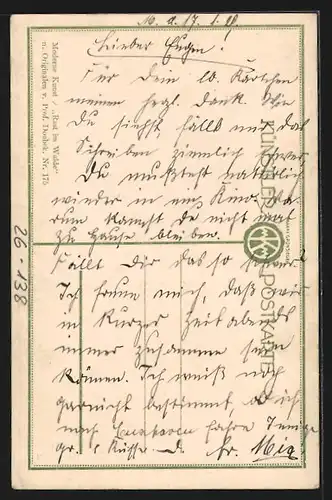 M. d. 17. 1. 18.
Lieber Eugen.
Für dein lb. Kärtchen
meinen herzl. Dank. Wie
Du siehst fällt nur das
Schreiben ziemlich schwer.
Du mußtest natürlich
wieder in ein Kino. Wa-
rum kannst du nicht mal
zu Hause bleiben.
Fällt Dir das so schwer?
Ich freue mich, daß wir
in kurzer Zeit abends
immer zusammen sein
können. Ich weiß noch
garnicht bestimmt, ob ich
nach fahre
gr. Küsse Mia
Moderne Kunst „Rast im Walde"
n. Originalen v. Prof. Nr. 175
KÜNSTLER POSTKARTE
26-138